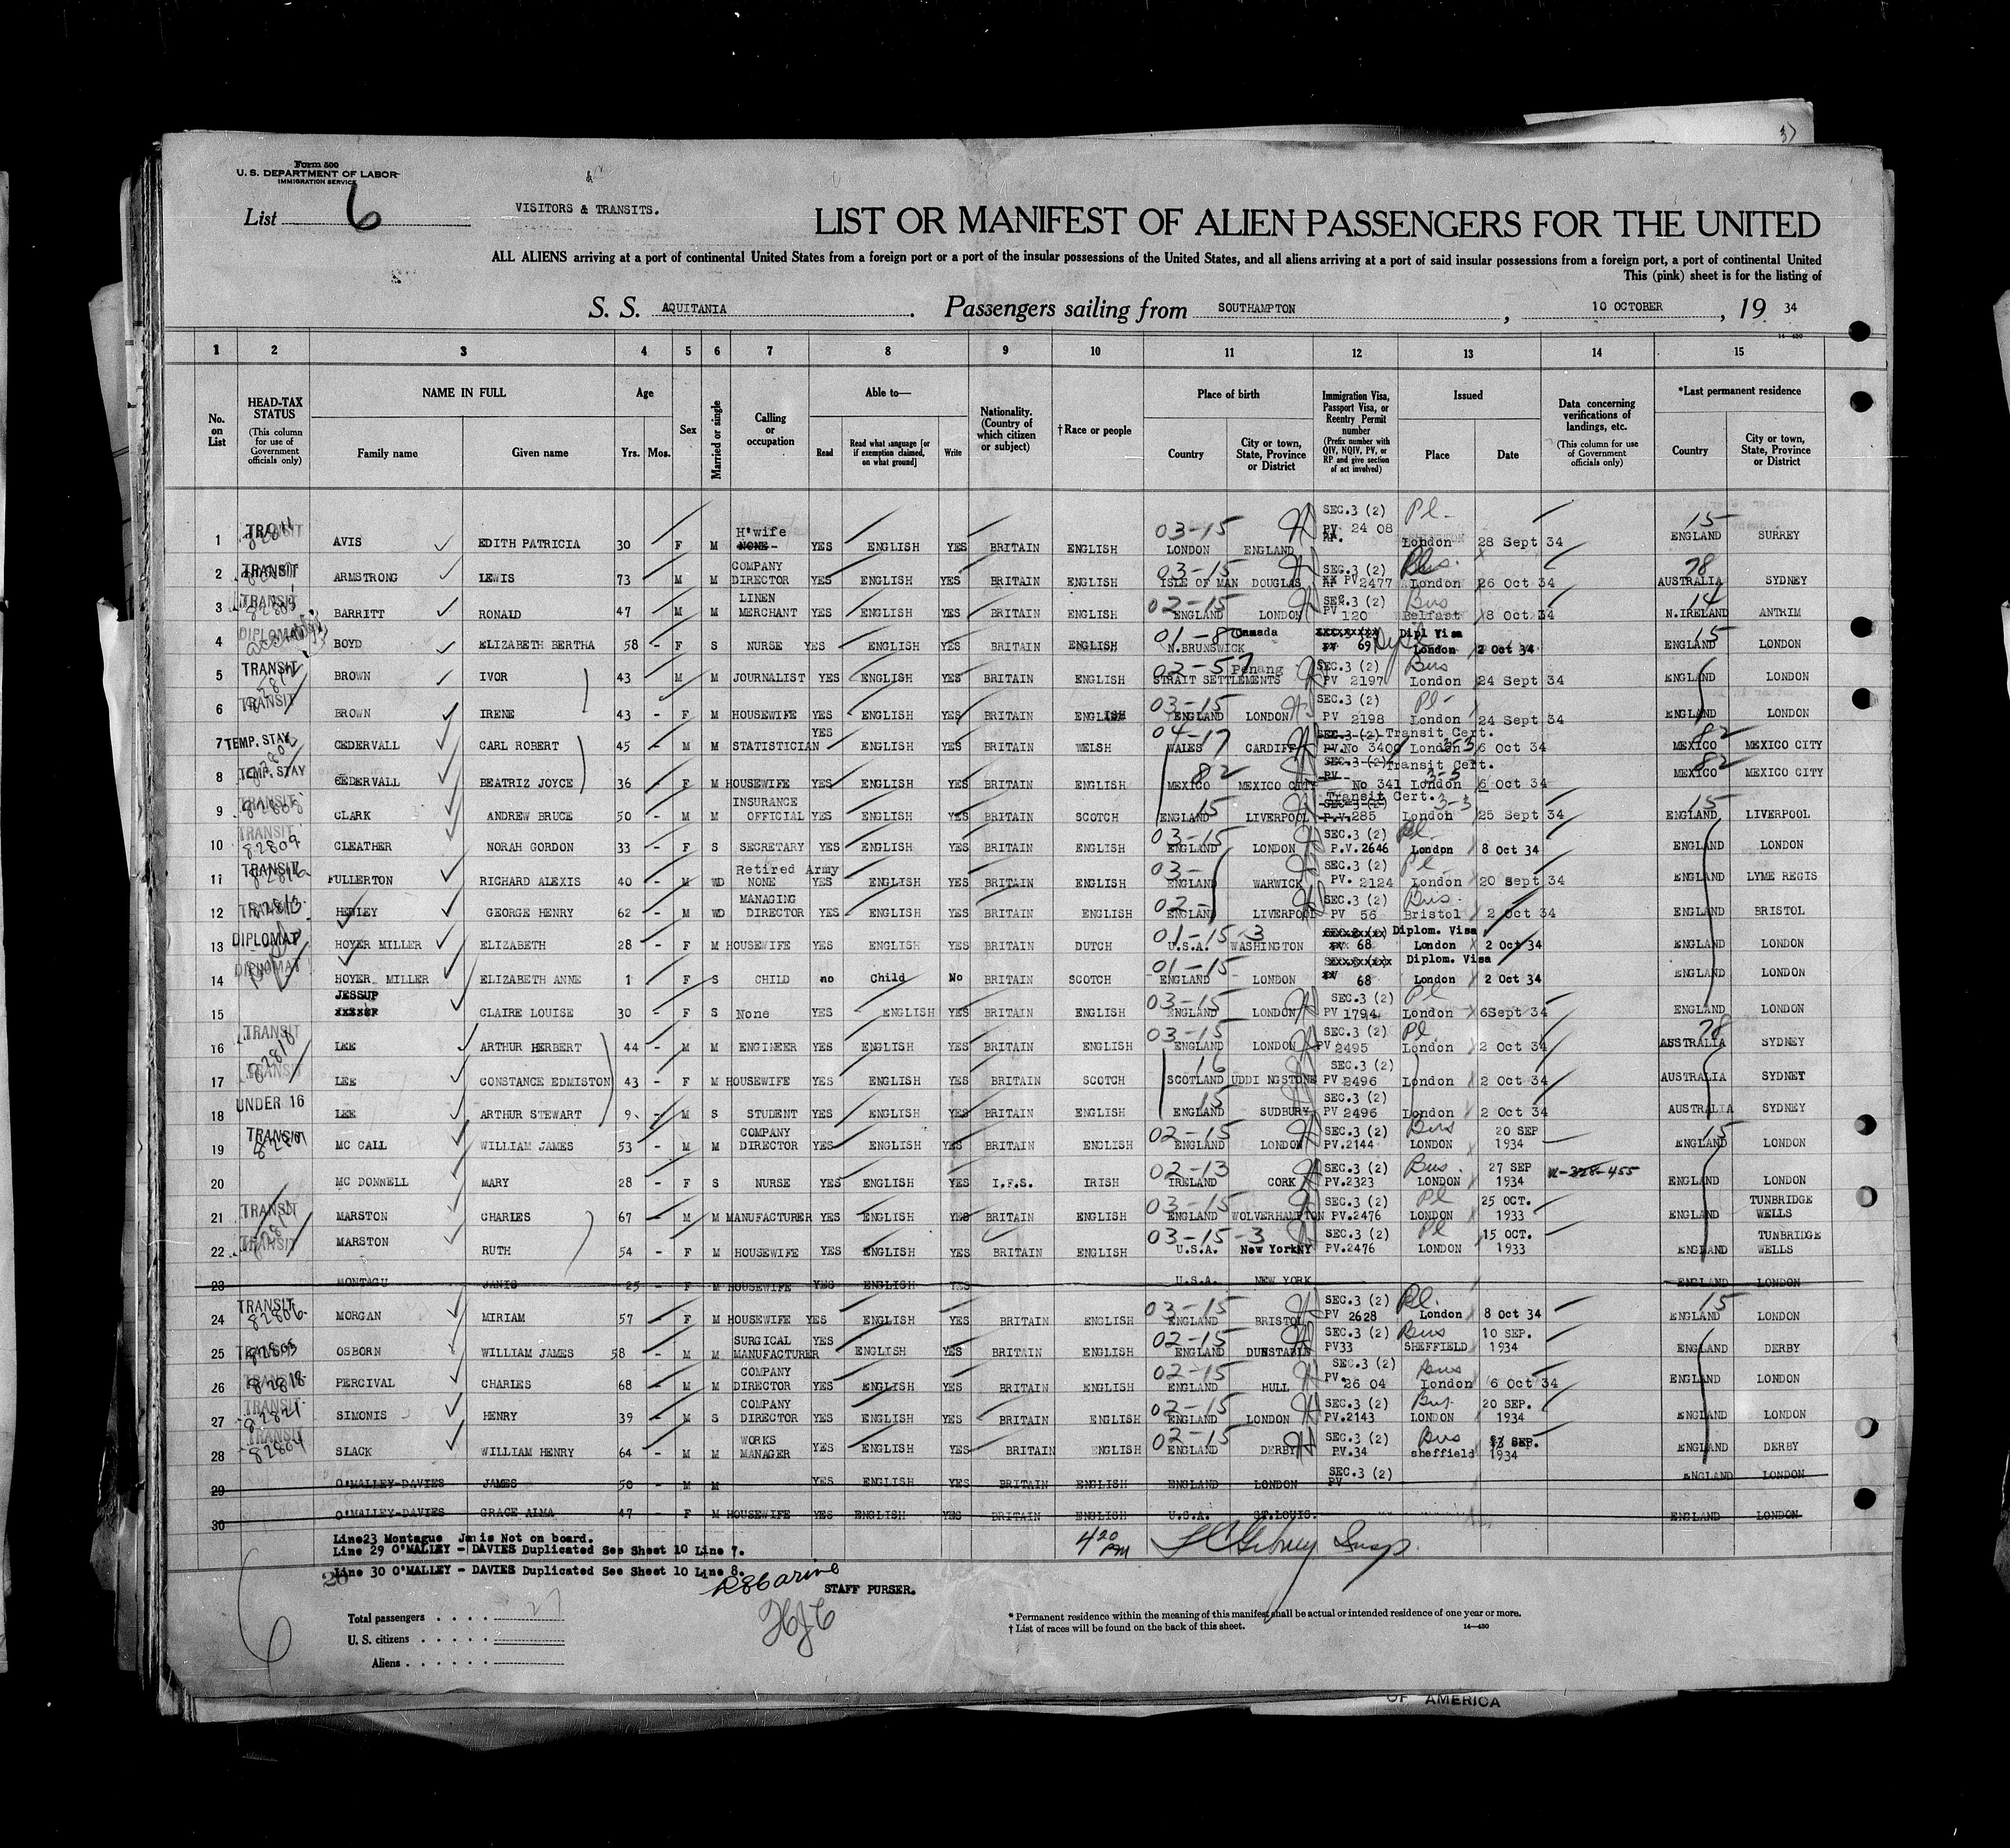 Form 500
U. S. DEPARTMENT OF LABOR
IMMIGRATION SERVICE
List 6
VISITORS & TRANSITS.
LIST OR MANIFEST OF ALIEN PASSENGERS FOR THE UNITED
ALL ALIENS arriving at a port of continental United States from a foreign port or a port of the insular possessions of the United States, and all aliens arriving at a port of said insular possessions from a foreign port, a port of continental United
This (pink) sheet is for the listing of
S. S. AQUITANIA . Passengers sailing from SOUTHAMPTON , 10 OCTOBER , 19 34
14-430
1 2 3 4 5 6 7 8 9 10 11 12 13 14 15
No. on List
HEAD-TAX STATUS (This column for use of Government officials only)
NAME IN FULL Family name Given name
Age Yrs. Mos.
Sex
Married or single
Calling or occupation
Able to— Read Read what language [or if exemption claimed, on what ground] Write
Nationality. (Country of which citizen or subject)
†Race or people
Place of birth Country City or town, State, Province or District
Immigration Visa, Passport Visa, or Reentry Permit number (Prefix number with QIV, NQIV, PV, or RP and give section of act involved)
Issued Place Date
Data concerning verifications of landings, etc. (This column for use of Government officials only)
*Last permanent residence Country City or town, State, Province or District
1 TRANSIT AVIS EDITH PATRICIA 30 F M H'wife NONE YES ENGLISH YES BRITAIN ENGLISH 03-15 LONDON ENGLAND SEC.3 (2) PV 24 08 Pl. London 28 Sept 34 15 ENGLAND SURREY
2 TRANSIT ARMSTRONG LEWIS 73 M M COMPANY DIRECTOR YES ENGLISH YES BRITAIN ENGLISH 03-15 ISLE OF MAN DOUGLAS SEC.3 (2) PV 2477 London 26 Oct 34 78 AUSTRALIA SYDNEY
3 TRANSIT BARRITT RONALD 47 M M LINEN MERCHANT YES ENGLISH YES BRITAIN ENGLISH 02-15 ENGLAND LONDON SEC.3 (2) PV 120 Bus Belfast 8 Oct 34 14 N.IRELAND ANTRIM
4 DIPLOMAT BOYD ELIZABETH BERTHA 58 - F S NURSE YES ENGLISH YES BRITAIN ENGLISH 01-8 Canada N.BRUNSWICK PV 69 Dipl Visa London 2 Oct 34 15 ENGLAND LONDON
5 TRANSIT BROWN IVOR 43 M M JOURNALIST YES ENGLISH YES BRITAIN ENGLISH 02-57 Penang STRAIT SETTLEMENTS SEC.3 (2) PV 2197 Bus London 24 Sept 34 ENGLAND LONDON
6 TRANSIT BROWN IRENE 43 - F M HOUSEWIFE YES ENGLISH YES BRITAIN ENGLISH 03-15 ENGLAND LONDON SEC.3 (2) PV 2198 Pl- London 24 Sept 34 ENGLAND LONDON
7 TEMP. STAY CEDERVALL CARL ROBERT 45 - M M STATISTICIAN YES ENGLISH YES BRITAIN WELSH 04-17 WALES CARDIFF SEC.3-(2) Transit Cert. PV.No 3400 London 3-3 6 Oct 34 82 MEXICO MEXICO CITY
8 TEMP. STAY CEDERVALL BEATRIZ JOYCE 36 - F M HOUSEWIFE YES ENGLISH YES BRITAIN ENGLISH 82 MEXICO MEXICO CITY SEC.3-(2) Transit Cert. PV- No 341 London 3-3 6 Oct 34 82 MEXICO MEXICO CITY
9 TRANSIT 82808 CLARK ANDREW BRUCE 50 - M M INSURANCE OFFICIAL YES ENGLISH YES BRITAIN SCOTCH 15 ENGLAND LIVERPOOL Transit Cert. SEC.3-(2) P.V.285 London 3-3 25 Sept 34 15 ENGLAND LIVERPOOL
10 TRANSIT 82809 CLEATHER NORAH GORDON 33 - F S SECRETARY YES ENGLISH YES BRITAIN ENGLISH 03-15 ENGLAND LONDON SEC.3 (2) P.V.2646 Pl. London 8 Oct 34 ENGLAND LONDON
11 TRANSIT FULLERTON RICHARD ALEXIS 40 - M WD Retired Army NONE YES ENGLISH YES BRITAIN ENGLISH 03- ENGLAND WARWICK SEC.3 (2) PV. 2124 Pl- London 20 Sept 34 ENGLAND LYME REGIS
12 TRANSIT HEDLEY GEORGE HENRY 62 - M WD MANAGING DIRECTOR YES ENGLISH YES BRITAIN ENGLISH 02- ENGLAND LIVERPOOL SEC.3 (2) PV 56 Bus. Bristol 2 Oct 34 ENGLAND BRISTOL
13 DIPLOMAT HOYER MILLER ELIZABETH 28 - F M HOUSEWIFE YES ENGLISH YES BRITAIN DUTCH 01-15-3 U.S.A. WASHINGTON 68 Diplom. Visa London 2 Oct 34 ENGLAND LONDON
14 DIPLOMAT HOYER MILLER ELIZABETH ANNE 1 F S CHILD no Child No BRITAIN SCOTCH 01-15 ENGLAND LONDON 68 Diplom. Visa London 2 Oct 34 ENGLAND LONDON
15 JESSUP CLAIRE LOUISE 30 - F S None YES ENGLISH YES BRITAIN ENGLISH 03-15 ENGLAND LONDON SEC.3 (2) PV 1794 Pl London 6Sept 34 ENGLAND LONDON
16 TRANSIT LEE ARTHUR HERBERT 44 - M M ENGINEER YES ENGLISH YES BRITAIN ENGLISH 03-15 ENGLAND LONDON SEC.3 (2) PV 2495 Pl. London 2 Oct 34 78 AUSTRALIA SYDNEY
17 TRANSIT 82818 LEE CONSTANCE EDMISTON 43 - F M HOUSEWIFE YES ENGLISH YES BRITAIN SCOTCH 16 SCOTLAND UDDINGSTONE SEC.3 (2) PV 2496 London 2 Oct 34 AUSTRALIA SYDNEY
18 UNDER 16 LEE ARTHUR STEWART 9 - M S STUDENT YES ENGLISH YES BRITAIN ENGLISH 15 ENGLAND SUDBURY SEC.3 (2) PV 2496 London 2 Oct 34 AUSTRALIA SYDNEY
19 TRANSIT MC CALL WILLIAM JAMES 53 - M M COMPANY DIRECTOR YES ENGLISH YES BRITAIN ENGLISH 02-15 ENGLAND LONDON SEC.3 (2) PV.2144 Bus LONDON 20 SEP 1934 15 ENGLAND LONDON
20 MC DONNELL MARY 28 - F S NURSE YES ENGLISH YES I.F.S. IRISH 02-13 IRELAND CORK SEC.3 (2) PV.2323 Bus. LONDON 27 SEP 1934 ENGLAND LONDON
21 TRANSIT MARSTON CHARLES 67 - M M MANUFACTURER YES ENGLISH YES BRITAIN ENGLISH 03-15 ENGLAND WOLVERHAMPTON SEC.3 (2) PV.2476 Pl LONDON 25 OCT. 1933 ENGLAND TUNBRIDGE WELLS
22 TRANSIT MARSTON RUTH 54 - F M HOUSEWIFE YES ENGLISH YES BRITAIN ENGLISH 03-15-3 U.S.A. New York NY SEC.3 (2) PV.2476 Pl LONDON 15 OCT. 1933 ENGLAND TUNBRIDGE WELLS
23 MONTAGU JANIS 25 F M HOUSEWIFE YES ENGLISH YES U.S.A. NEW YORK ENGLAND LONDON
24 TRANSIT 82806 MORGAN MIRIAM 57 - F M HOUSEWIFE YES ENGLISH YES BRITAIN ENGLISH 03-15 ENGLAND BRISTOL SEC.3 (2) PV 2628 Pl. London 8 Oct 34 15 ENGLAND LONDON
25 TRANSIT OSBORN WILLIAM JAMES 58 - M M SURGICAL MANUFACTURER YES ENGLISH YES BRITAIN ENGLISH 02-15 ENGLAND DUNSTABLE SEC.3 (2) PV33 Bus SHEFFIELD 10 SEP. 1934 ENGLAND DERBY
26 TRANSIT 82818 PERCIVAL CHARLES 68 - M M COMPANY DIRECTOR YES ENGLISH YES BRITAIN ENGLISH 02-15 ENGLAND HULL SEC.3 (2) PV. 26 04 Bus London 6 Oct 34 ENGLAND LONDON
27 TRANSIT 82821 SIMONIS HENRY 39 - M S COMPANY DIRECTOR YES ENGLISH YES BRITAIN ENGLISH 02-15 ENGLAND LONDON SEC.3 (2) PV.2143 Bus LONDON 20 SEP. 1934 ENGLAND LONDON
28 TRANSIT 82804 SLACK WILLIAM HENRY 64 - M M WORKS MANAGER YES ENGLISH YES BRITAIN ENGLISH 02-15 ENGLAND DERBY SEC.3 (2) P.V.34 Bus sheffield 13 SEP. 1934 ENGLAND DERBY
29 O'MALLEY-DAVIES JAMES 50 - M M YES ENGLISH YES BRITAIN ENGLISH ENGLAND LONDON SEC.3 (2) PV ENGLAND LONDON
30 O'MALLEY-DAVIES GRACE ALMA 47 - F M HOUSEWIFE YES ENGLISH YES BRITAIN ENGLISH U.S.A. ST.LOUIS. ENGLAND LONDON
Line23 Montague Janis Not on board.
Line 29 O'MALLEY - DAVIES Duplicated See Sheet 10 Line 7.
Line 30 O'MALLEY - DAVIES Duplicated See Sheet 10 Line 8.
4 20 PM
STAFF PURSER.
Total passengers 27
U. S. citizens
Aliens
* Permanent residence within the meaning of this manifest shall be actual or intended residence of one year or more.
† List of races will be found on the back of this sheet.
14-430
OF AMERICA